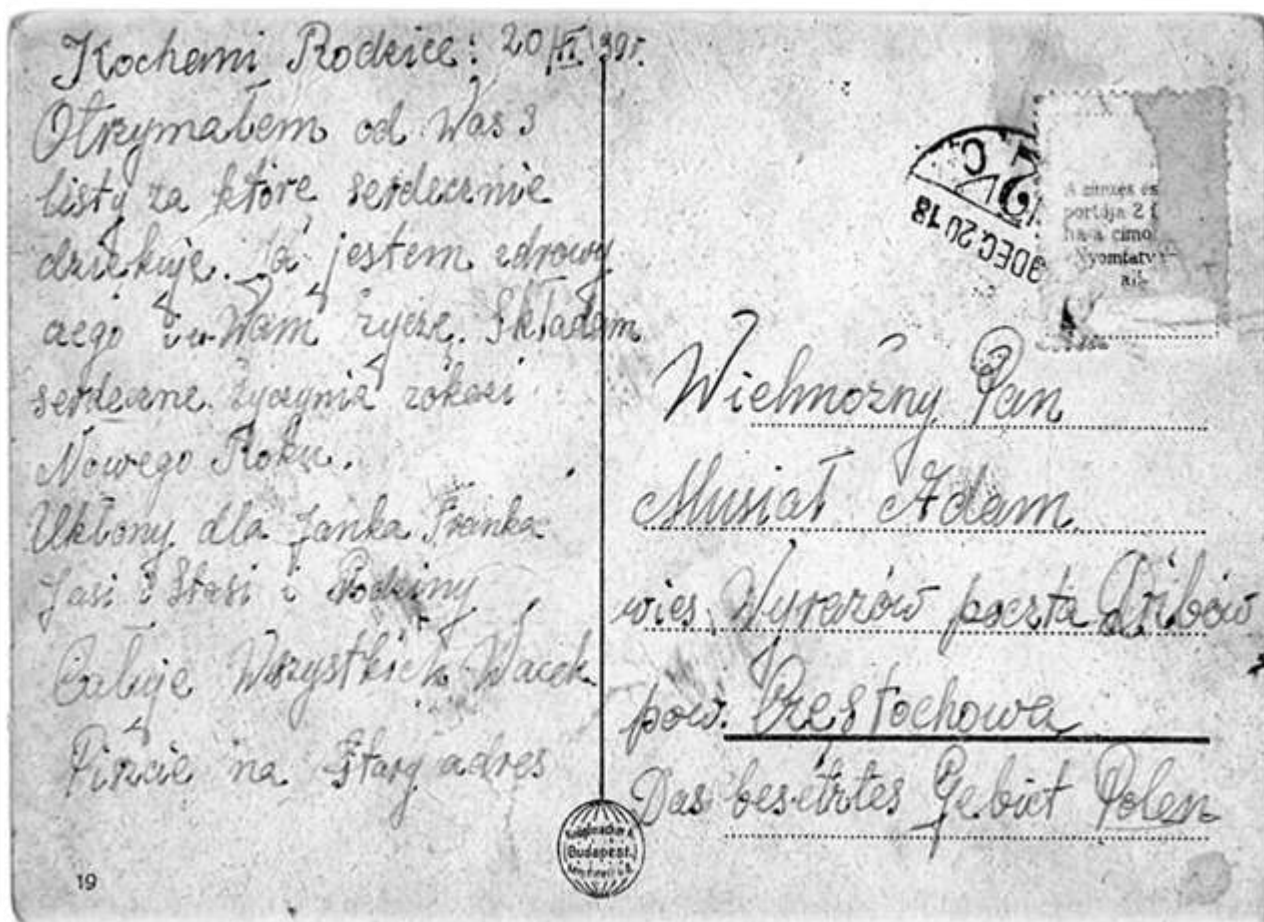 Kochani Rodzice: 20/XI 39r.
Otrzymałem od Was 3
listy za które serdecznie
dziękuję. Ja jestem zdrowy
czego i Wam życzę. Składam
serdeczne życzynia zokazi
Nowego Roku.
Ukłony dla Janka Franka
Jasi i Stasi i Rodziny
Całuje Wszystkich Wacek
Piszcie na stary adres
19
9DEC 20 18
A címzés és
portója 2 f
ha a címol
Nyomtatv
Wielmożny Pan
Musiał Adam
wieś Wyrazów poczta
pow. Częstochowa
Das besetztes Gebiet Polen
(Budapest.)